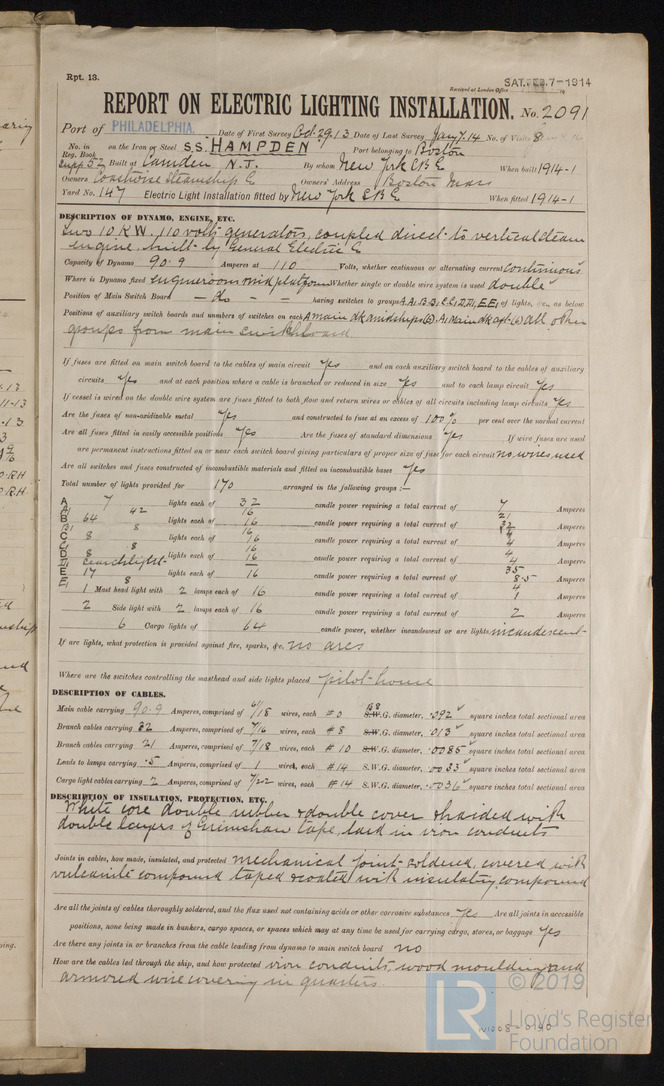 Rpt. 13.
SAT. FEB. 7-1914
Received at London Office
REPORT ON ELECTRIC LIGHTING INSTALLATION. No. 2091
Port of PHILADELPHIA Date of First Survey Oct 29.13 Date of Last Survey Jany 7.14 No. of Visits 8
No. in Reg. Book Supp 52 on the Iron or Steel S.S. HAMPDEN Port belonging to Boston
Built at Camden N.J. By whom New York S B C When built 1914-1
Owners Coastwise Steamship C Owners' Address Boston Mass
Yard No. 147 Electric Light Installation fitted by New York S B C When fitted 1914-1
DESCRIPTION OF DYNAMO, ENGINE, ETC.
Two 10 K.W. 110 volt generators, coupled direct to vertical steam
engine built by General Electric C
Capacity of Dynamo 90.9 Amperes at 110 Volts, whether continuous or alternating current continuous
Where is Dynamo fixed engineroom mid platform Whether single or double wire system is used double
Position of Main Switch Board - do - - having switches to groups A.A1 B.B1 C.C1 D.D1 E.E1 of lights, &c., as below
Positions of auxiliary switch boards and numbers of switches on each A main dk amidships (5) A1 Main dk aft (6) all other
groups from main switchboard
If fuses are fitted on main switch board to the cables of main circuit Yes and on each auxiliary switch board to the cables of auxiliary
circuits Yes and at each position where a cable is branched or reduced in size Yes and to each lamp circuit Yes
If vessel is wired on the double wire system are fuses fitted to both flow and return wires or cables of all circuits including lamp circuits Yes
Are the fuses of non-oxidizable metal Yes and constructed to fuse at an excess of 100% per cent over the normal current
Are all fuses fitted in easily accessible positions Yes Are the fuses of standard dimensions Yes If wire fuses are used
are permanent instructions fitted on or near each switch board giving particulars of proper size of fuse for each circuit no wires used
Are all switches and fuses constructed of incombustible materials and fitted on incombustible bases Yes
Total number of lights provided for 170 arranged in the following groups :—
A 7 lights each of 32 candle power requiring a total current of 7 Amperes
A1 42 16 21
B 64 lights each of 16 candle power requiring a total current of 32 Amperes
B1 8 16 4
C 8 lights each of 16 candle power requiring a total current of 4 Amperes
C1 8 16 4
D 8 lights each of 16 candle power requiring a total current of 4 Amperes
D1 Searchlight — 35
E 17 lights each of 16 candle power requiring a total current of 8.5 Amperes
E1 8 4
1 Mast head light with 2 lamps each of 16 candle power requiring a total current of 1 Amperes
2 Side light with 2 lamps each of 16 candle power requiring a total current of 2 Amperes
6 Cargo lights of 64 candle power, whether incandescent or arc lights incandescent
If arc lights, what protection is provided against fire, sparks, &c. no arcs
Where are the switches controlling the masthead and side lights placed pilot-house
DESCRIPTION OF CABLES.
Main cable carrying 90.9 Amperes, comprised of 61/18 wires, each #0 S.W.G. diameter, .092 square inches total sectional area
Branch cables carrying 32 Amperes, comprised of 7/16 wires, each #8 S.W.G. diameter, .013 square inches total sectional area
Branch cables carrying 21 Amperes, comprised of 7/18 wires, each #10 S.W.G. diameter, .0085 square inches total sectional area
Leads to lamps carrying .5 Amperes, comprised of 1 wires, each #14 S.W.G. diameter, .0033 square inches total sectional area
Cargo light cables carrying 2 Amperes, comprised of 7/22 wires, each #14 S.W.G. diameter, .0036 square inches total sectional area
DESCRIPTION OF INSULATION, PROTECTION, ETC.
White core double rubber & double cover braided with
double layers of Grimshaw tape, laid in iron conduits
Joints in cables, how made, insulated, and protected mechanical joint soldered, covered with
vulcanite compound taped & coated with insulating compound
Are all the joints of cables thoroughly soldered, and the flux used not containing acids or other corrosive substances Yes Are all joints in accessible
positions, none being made in bunkers, cargo spaces, or spaces which may at any time be used for carrying cargo, stores, or baggage Yes
Are there any joints in or branches from the cable leading from dynamo to main switch board no
How are the cables led through the ship, and how protected iron conduits, wood moulding and
armored wire covering in quarters.
© 2019
LR
Lloyd's Register
Foundation
W1008-0190